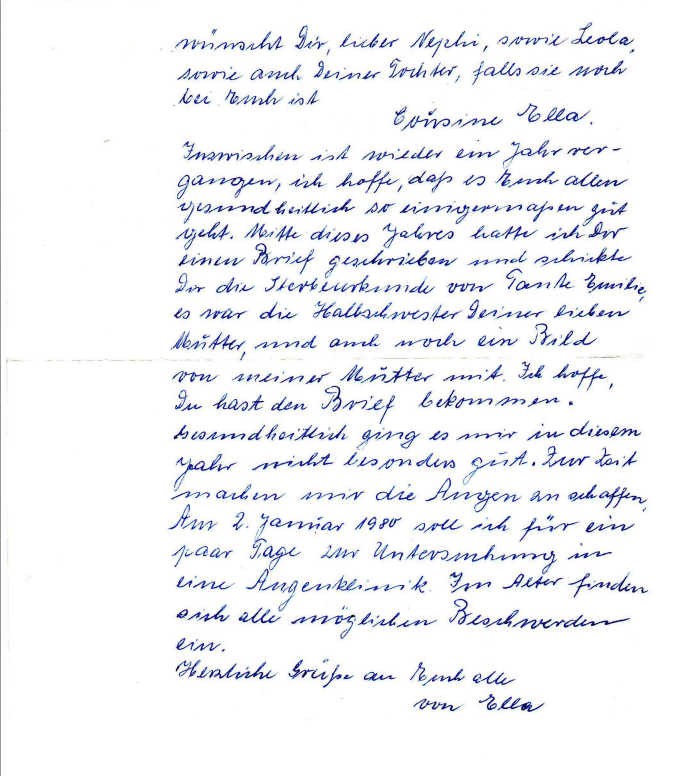 wünscht Dir, lieber Nephi, sowie Leola,
sowie auch Deiner Tochter, falls sie noch
bei Euch ist
Cousine Ella.
Inzwischen ist wieder ein Jahr ver-
gangen, ich hoffe, daß es Euch allen
gesundheitlich so einigermaßen gut
geht. Mitte dieses Jahres hatte ich Dir
einen Brief geschrieben und schickte
Dir die Sterbeurkunde von Tante Emilie,
es war die Halbschwester Deiner lieben
Mutter, und auch noch ein Bild
von meiner Mutter mit. Ich hoffe,
Du hast den Brief bekommen.
Gesundheitlich ging es mir in diesem
Jahr nicht besonders gut. Zur Zeit
machen mir die Augen zu schaffen,
Am 2. Januar 1980 soll ich für ein
paar Tage zur Untersuchung in
eine Augenklinik. Im Alter finden
sich alle möglichen Beschwerden
ein.
Herzliche Grüße an Euch alle
von Ella